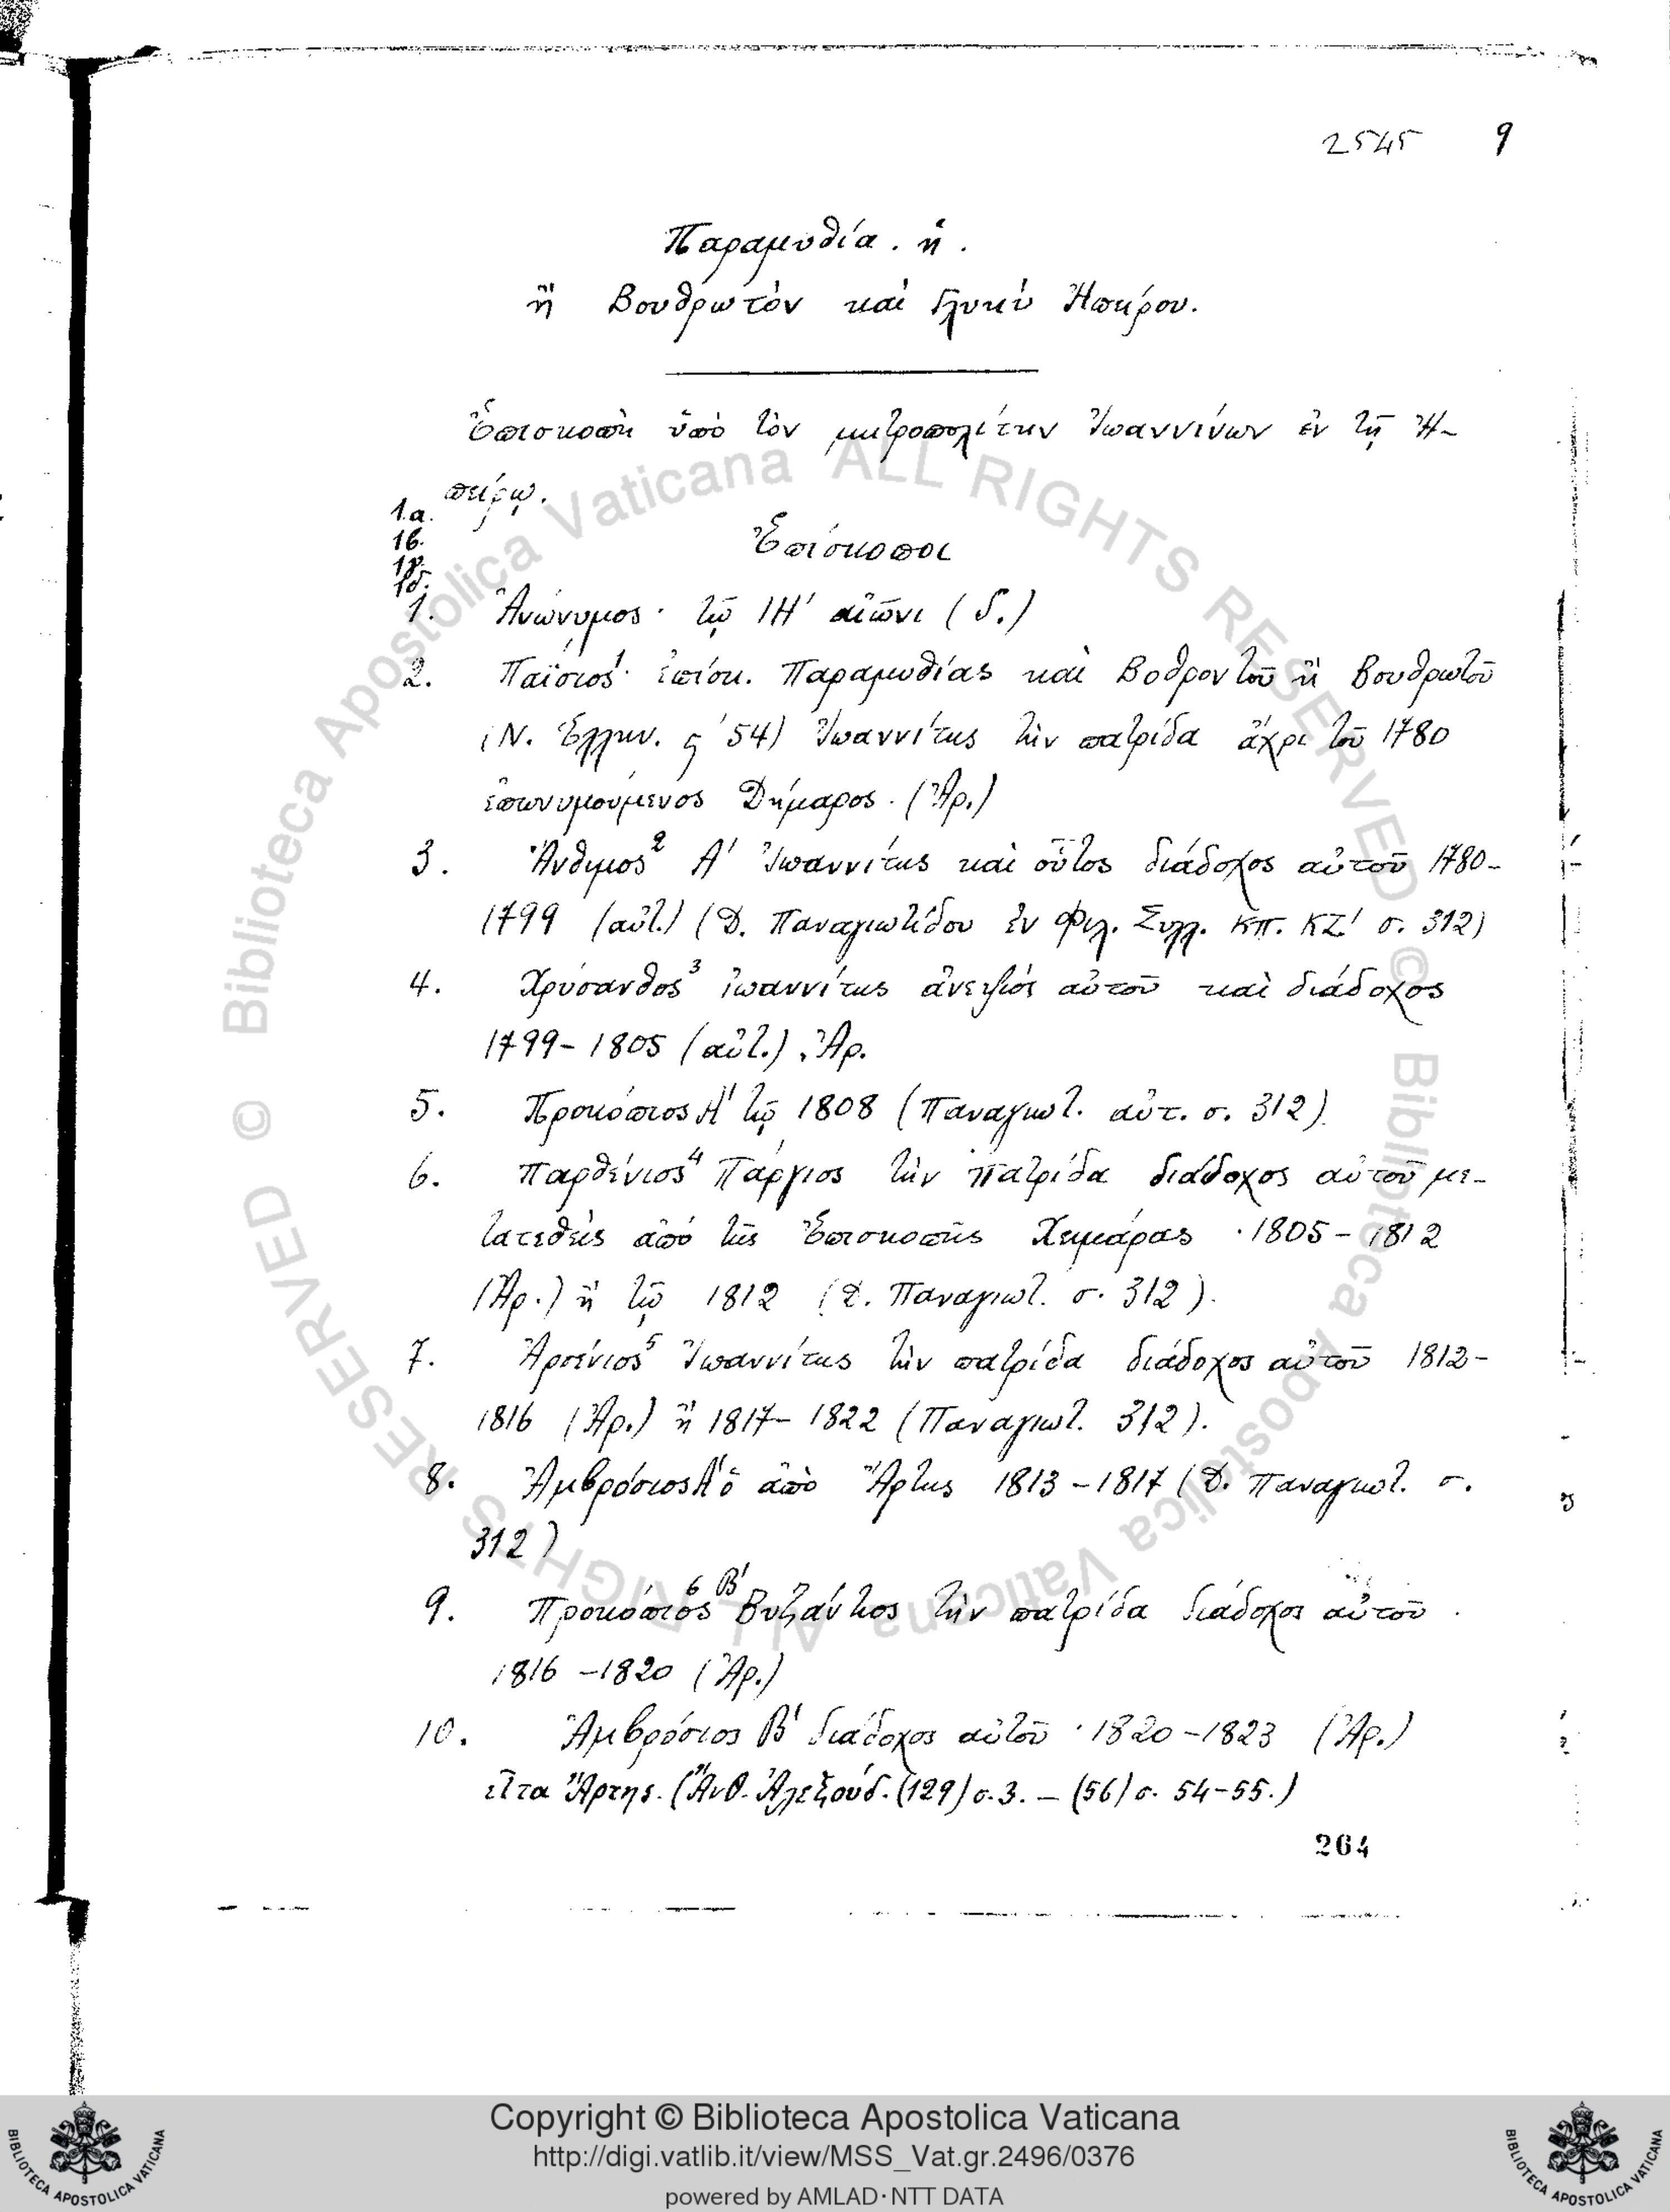 2545 9
Παραμυθία . ἡ .
ἢ Βουθρωτὸν καὶ Γλυκὺ Ἠπείρου.
Ἐπισκοπὴ ὑπὸ τὸν μητροπολίτην Ἰωαννίνων ἐν τῇ Ἠ-
πείρῳ.
1.α.
1β.
1γ.
1δ.
Ἐπίσκοποι
1. Ἀνώνυμος · τῷ ΙΗ' αἰῶνι (δ.)
2. Παΐσιος¹· ἐπίσκ. Παραμυθίας καὶ Βοθροντοῦ ἢ Βουθρωτοῦ
(Ν. Ἑλλην. ς' 54) Ἰωαννίτης τὴν πατρίδα ἄχρι τοῦ 1780
ἐπωνυμούμενος Δήμαρος . (Ἀρ.)
3. Ἄνθιμος² Α' Ἰωαννίτης καὶ οὗτος διάδοχος αὐτοῦ 1780-
1799 (αὐτ.) (Δ. Παναγιωτίδου ἐν Φιλ. Συλλ. Κπ. ΚΖ' σ. 312)
4. Χρύσανθος³ ἰωαννίτης ἀνεψιός αὐτοῦ καὶ διάδοχος
1799-1805 (αὐτ.) . Ἀρ.
5. Προκόπιος Α' τῷ 1808 (Παναγιωτ. αὐτ. σ. 312).
6. Παρθένιος⁴ Πάργιος τὴν πατρίδα διάδοχος αὐτοῦ με-
τατεθεὶς ἀπό τῆς Ἐπισκοπῆς Χειμάρας · 1805-1812
(Ἀρ.) ἢ τῷ 1812 (Δ. Παναγιωτ. σ. 312).
7. Ἀρσένιος⁵ Ἰωαννίτης τὴν πατρίδα διάδοχος αὐτοῦ 1812-
1816 (Ἀρ.) ἢ 1817-1822 (Παναγιωτ. 312).
8. Ἀμβρόσιος Α' ὁ ἀπὸ Ἄρτης 1813-1817 (Δ. Παναγιωτ. σ.
312)
9. Προκόπιος⁶ Β' Βυζάντιος τὴν πατρίδα διάδοχος αὐτοῦ .
1816-1820 (Ἀρ.)
10. Ἀμβρόσιος Β' διάδοχος αὐτοῦ · 1820-1823 (Ἀρ.)
εἶτα Ἄρτης. (Ἄνθ. Ἀλεξούδ. (129) σ. 3. — (56) σ. 54-55.)
264
© Biblioteca Apostolica Vaticana ALL RIGHTS RESERVED
© Biblioteca Apostolica Vaticana ALL RIGHTS RESERVED
Copyright © Biblioteca Apostolica Vaticana
http://digi.vatlib.it/view/MSS_Vat.gr.2496/0376
powered by AMLAD·NTT DATA
BIBLIOTECA APOSTOLICA VATICANA
BIBLIOTECA APOSTOLICA VATICANA